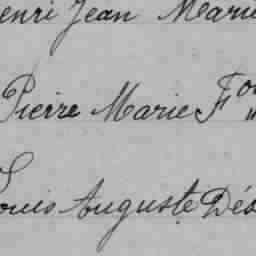 enri Jean Marie
Pierre Marie Fois
Louis Auguste Dés